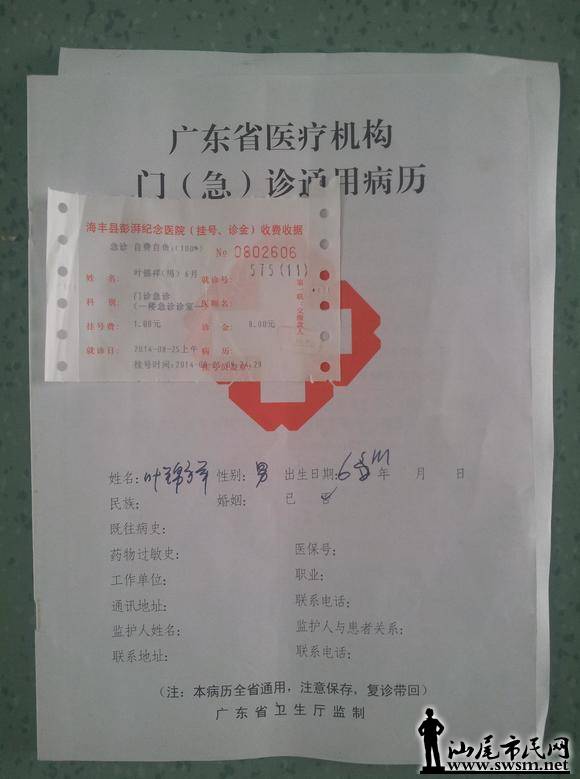 广东省医疗机构
门（急）诊通用病历
海丰县彭湃纪念医院（挂号、诊金）收费收据
急诊 自费自负:(100%) № 0802606
575(11)
姓 名: 叶锦祥(男) 6月 就诊号:
科 别: 门诊急诊
(一楼急诊诊室一)
医师名:
挂号费: 1.00元 诊 金: 8.00元
就诊日: 2014-08-25上午 病 历:
挂号时间:2014-08-25
第一联:交缴款人
姓名: 叶锦祥 性别: 男 出生日期: 年 月 日
民族: 婚姻: 已 否
既往病史:
药物过敏史: 医保号:
工作单位: 职业:
通讯地址: 联系电话:
监护人姓名: 监护人与患者关系:
联系地址: 联系电话:
(注: 本病历全省通用, 注意保存, 复诊带回)
广东省卫生厅监制
汕尾市民网
www.swsm.net